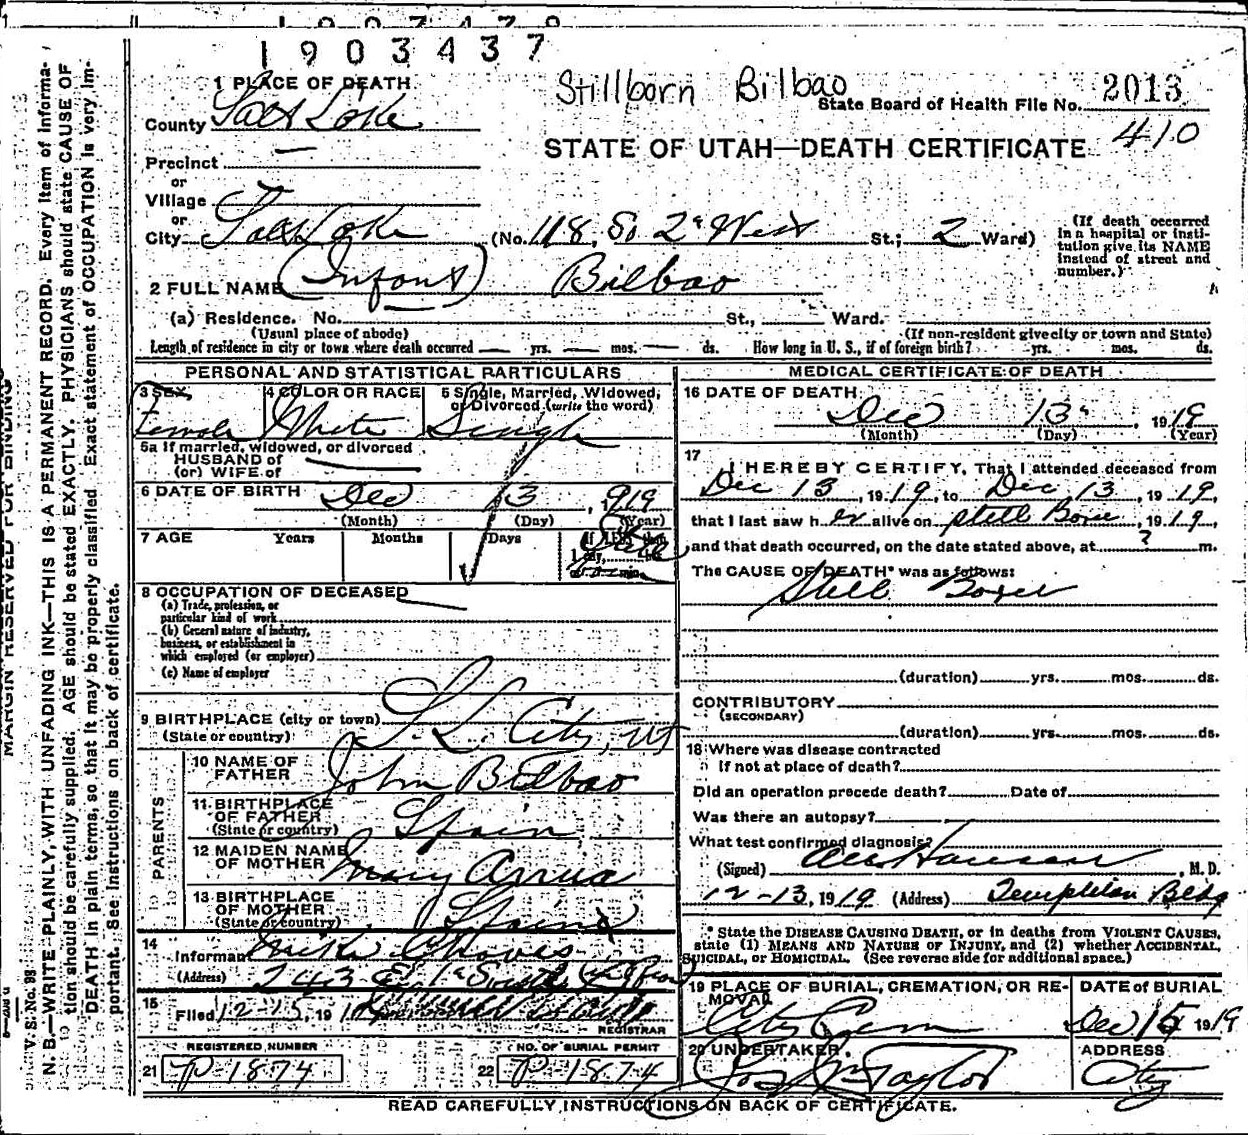 1903437
Stillborn Bilbao
1 PLACE OF DEATH
State Board of Health File No. 2013
County Salt Lake
410
STATE OF UTAH—DEATH CERTIFICATE
Precinct —
or
Village
or
City Salt Lake (No. 118 So 2d West St.; 2 Ward)
(If death occurred in a hospital or institution give its NAME instead of street and number.)
2 FULL NAME (Infant) Bilbao
(a) Residence. No. St., Ward.
(Usual place of abode) (If non-resident give city or town and State)
Length of residence in city or town where death occurred — yrs. — mos. — ds. How long in U. S., if of foreign birth? yrs. mos. ds.
PERSONAL AND STATISTICAL PARTICULARS
3 SEX Female
4 COLOR OR RACE White
5 Single, Married, Widowed, or Divorced (write the word) Single
5a If married, widowed, or divorced
HUSBAND of
(or) WIFE of
6 DATE OF BIRTH Dec 13, 1919
(Month) (Day) (Year)
7 AGE Years Months Days
8 OCCUPATION OF DECEASED
(a) Trade, profession, or
particular kind of work
(b) General nature of industry,
business, or establishment in
which employed (or employer)
(c) Name of employer
9 BIRTHPLACE (city or town) S. L. City, Ut
(State or country)
PARENTS
10 NAME OF FATHER John Bilbao
11 BIRTHPLACE OF FATHER (State or country) Spain
12 MAIDEN NAME OF MOTHER Mary
13 BIRTHPLACE OF MOTHER (State or country) Spain
14
Informant Mike
(Address) 243 E. 1st South
15
Filed 12-15, 19
REGISTRAR
REGISTERED NUMBER
21 P-1874
NO. OF BURIAL PERMIT
22 P-1874
MEDICAL CERTIFICATE OF DEATH
16 DATE OF DEATH
Dec 13, 1919
(Month) (Day) (Year)
17
I HEREBY CERTIFY, That I attended deceased from
Dec 13, 1919, to Dec 13, 1919,
that I last saw her alive on Still Born, 1919,
and that death occurred, on the date stated above, at ? m.
The CAUSE OF DEATH* was as follows:
Still Born
(duration) yrs. mos. ds.
CONTRIBUTORY
(SECONDARY)
(duration) yrs. mos. ds.
18 Where was disease contracted
If not at place of death?
Did an operation precede death? Date of
Was there an autopsy?
What test confirmed diagnosis?
(Signed) M. D.
12-13, 1919 (Address) Templeton Bldg
* State the DISEASE CAUSING DEATH, or in deaths from VIOLENT CAUSES,
state (1) MEANS AND NATURE OF INJURY, and (2) whether ACCIDENTAL,
SUICIDAL, or HOMICIDAL. (See reverse side for additional space.)
19 PLACE OF BURIAL, CREMATION, OR REMOVAL
City Cem
DATE of BURIAL
Dec 15 1919
20 UNDERTAKER
Jos. Wm Taylor
ADDRESS
City
READ CAREFULLY INSTRUCTIONS ON BACK OF CERTIFICATE.
MARGIN RESERVED FOR BINDING
V. S. No. 98
N. B.—WRITE PLAINLY, WITH UNFADING INK—THIS IS A PERMANENT RECORD. Every item of informa-
tion should be carefully supplied. AGE should be stated EXACTLY. PHYSICIANS should state CAUSE OF
DEATH in plain terms, so that it may be properly classified. Exact statement of OCCUPATION is very im-
portant. See instructions on back of certificate.